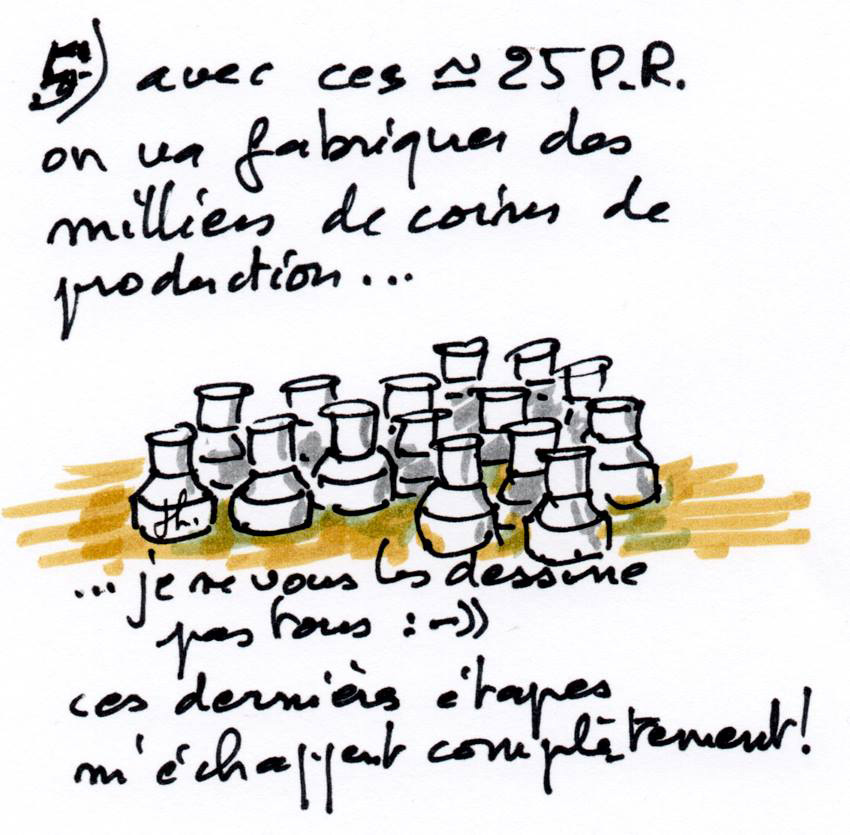 5) avec ces ≃ 25 P.R.
on va fabriquer des
milliers de coins de
production...
Jh.
...je ne vous les dessine
pas tous :-))
ces dernières étapes
m'échappent complètement!